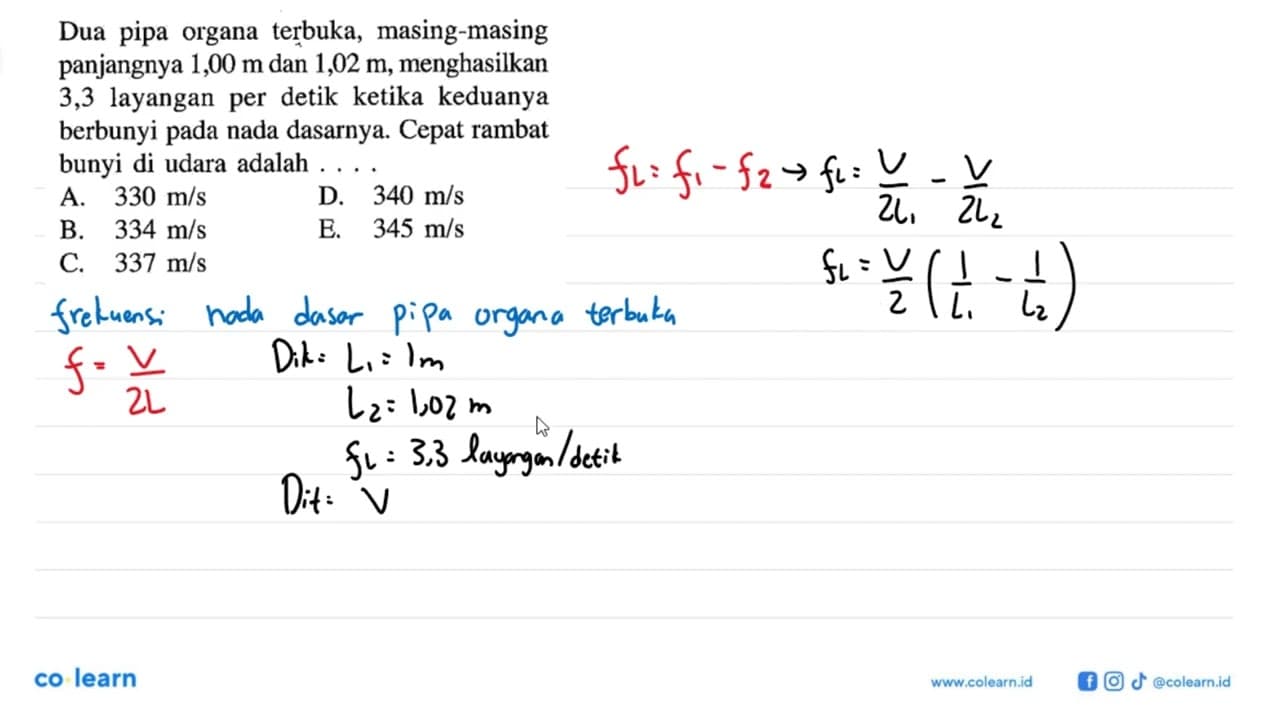 Dua pipa organa terbuka, masing-masing
panjangnya 1,00 m dan 1,02 m, menghasilkan
3,3 layangan per detik ketika keduanya
berbunyi pada nada dasarnya. Cepat rambat
bunyi di udara adalah . . . .
A. 330 m/s D. 340 m/s
B. 334 m/s E. 345 m/s
C. 337 m/s
fL = f1 - f2 → fL = V/2L1 - V/2L2
fL = V/2 (1/L1 - 1/L2)
frekuensi nada dasar pipa organa terbuka
f = V/2L
Dik: L1 = 1m
L2 = 1,02 m
fL = 3,3 layangan/detik
Dit: V
co learn
www.colearn.id @colearn.id